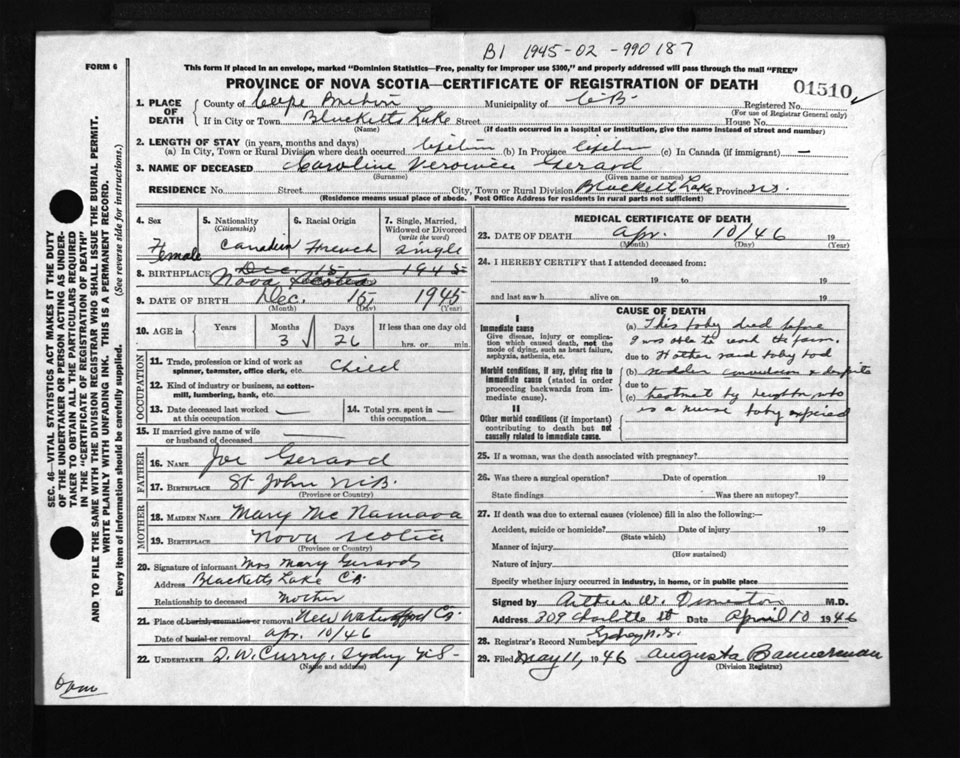 B1 1945-02-990187
FORM 6
This form if placed in an envelope, marked "Dominion Statistics—Free, penalty for improper use $300," and properly addressed will pass through the mail "FREE"
PROVINCE OF NOVA SCOTIA—CERTIFICATE OF REGISTRATION OF DEATH
01510
1. PLACE OF DEATH
County of Cape Breton Municipality of C.B. Registered No.
(For use of Registrar General only)
If in City or Town Blacketts Lake Street House No.
(Name) (If death occurred in a hospital or institution, give the name instead of street and number)
2. LENGTH OF STAY (in years, months and days)
(a) In City, Town or Rural Division where death occurred lifetime (b) In Province lifetime (c) In Canada (if immigrant) —
3. NAME OF DECEASED Caroline Veronica Gerard
(Surname) (Given name or names)
RESIDENCE No. Street City, Town or Rural Division Blacketts Lake Province N.S.
(Residence means usual place of abode. Post Office Address for residents in rural parts not sufficient)
4. Sex
Female
5. Nationality
(Citizenship)
Canadian
6. Racial Origin
French
7. Single, Married, Widowed or Divorced
(write the word)
Single
8. BIRTHPLACE Dec. 15, 1945
Nova Scotia
9. DATE OF BIRTH Dec. 15, 1945
(Month) (Day) (Year)
10. AGE in Years Months Days If less than one day old
3 26 hrs. or min.
OCCUPATION
11. Trade, profession or kind of work as spinner, teamster, office clerk, etc. Child
12. Kind of industry or business, as cotton-mill, lumbering, bank, etc.
13. Date deceased last worked at this occupation —
14. Total yrs. spent in this occupation —
15. If married give name of wife or husband of deceased —
FATHER
16. NAME Joe Gerard
17. BIRTHPLACE St John N.B.
(Province or Country)
MOTHER
18. MAIDEN NAME Mary McNamara
19. BIRTHPLACE Nova Scotia
(Province or Country)
20. Signature of informant Mrs Mary Gerard
Address Blacketts Lake C.B.
Relationship to deceased Mother
21. Place of burial, cremation or removal New Waterford Co.
Date of burial or removal Apr. 10/46
22. UNDERTAKER D.W. Curry, Sydney N.S.
(Name and address)
MEDICAL CERTIFICATE OF DEATH
23. DATE OF DEATH Apr. 10/46 19
(Month) (Day) (Year)
24. I HEREBY CERTIFY that I attended deceased from:
19 to 19
and last saw h alive on 19
CAUSE OF DEATH
I
Immediate cause
Give disease, injury or complication which caused death, not the mode of dying, such as heart failure, asphyxia, asthenia, etc.
Morbid conditions, if any, giving rise to immediate cause (stated in order proceeding backwards from immediate cause).
II
Other morbid conditions (if important) contributing to death but not causally related to immediate cause.
(a) This baby died before
I was able to reach the farm.
due to Mother said baby had
(b) sudden convulsion & despite
due to
(c) treatment by neighbor who
is a nurse baby expired
25. If a woman, was the death associated with pregnancy?
26. Was there a surgical operation? Date of operation 19
State findings Was there an autopsy?
27. If death was due to external causes (violence) fill in also the following:—
Accident, suicide or homicide? Date of injury 19
(State which)
Manner of injury
(How sustained)
Nature of injury
Specify whether injury occurred in industry, in home, or in public place
Signed by Arthur W. M.D.
Address 309 Charlotte St Date April 10 1946
Sydney N.S.
28. Registrar's Record Number
29. Filed May 11, 1946 Augusta Bannerman
(Division Registrar)
SEC. 46—VITAL STATISTICS ACT MAKES IT THE DUTY
OF THE UNDERTAKER OR PERSON ACTING AS UNDER-
TAKER TO OBTAIN ALL THE PARTICULARS REQUIRED
IN THE "CERTIFICATE OF REGISTRATION OF DEATH"
AND TO FILE THE SAME WITH THE DIVISION REGISTRAR WHO SHALL ISSUE THE BURIAL PERMIT.
WRITE PLAINLY WITH UNFADING INK. THIS IS A PERMANENT RECORD.
Every item of information should be carefully supplied. (See reverse side for instructions.)